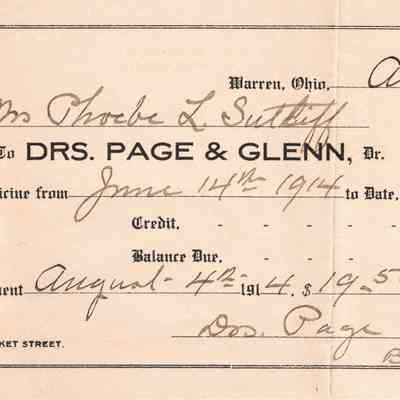 Warren, Ohio, A
Mrs Phoebe L Sutliff
To DRS. PAGE & GLENN, Dr.
icine from June 14th 1914 to Date,
Credit.
Balance Due.
ment August 4th 1914. $19.5
Drs. Page
KET STREET. B